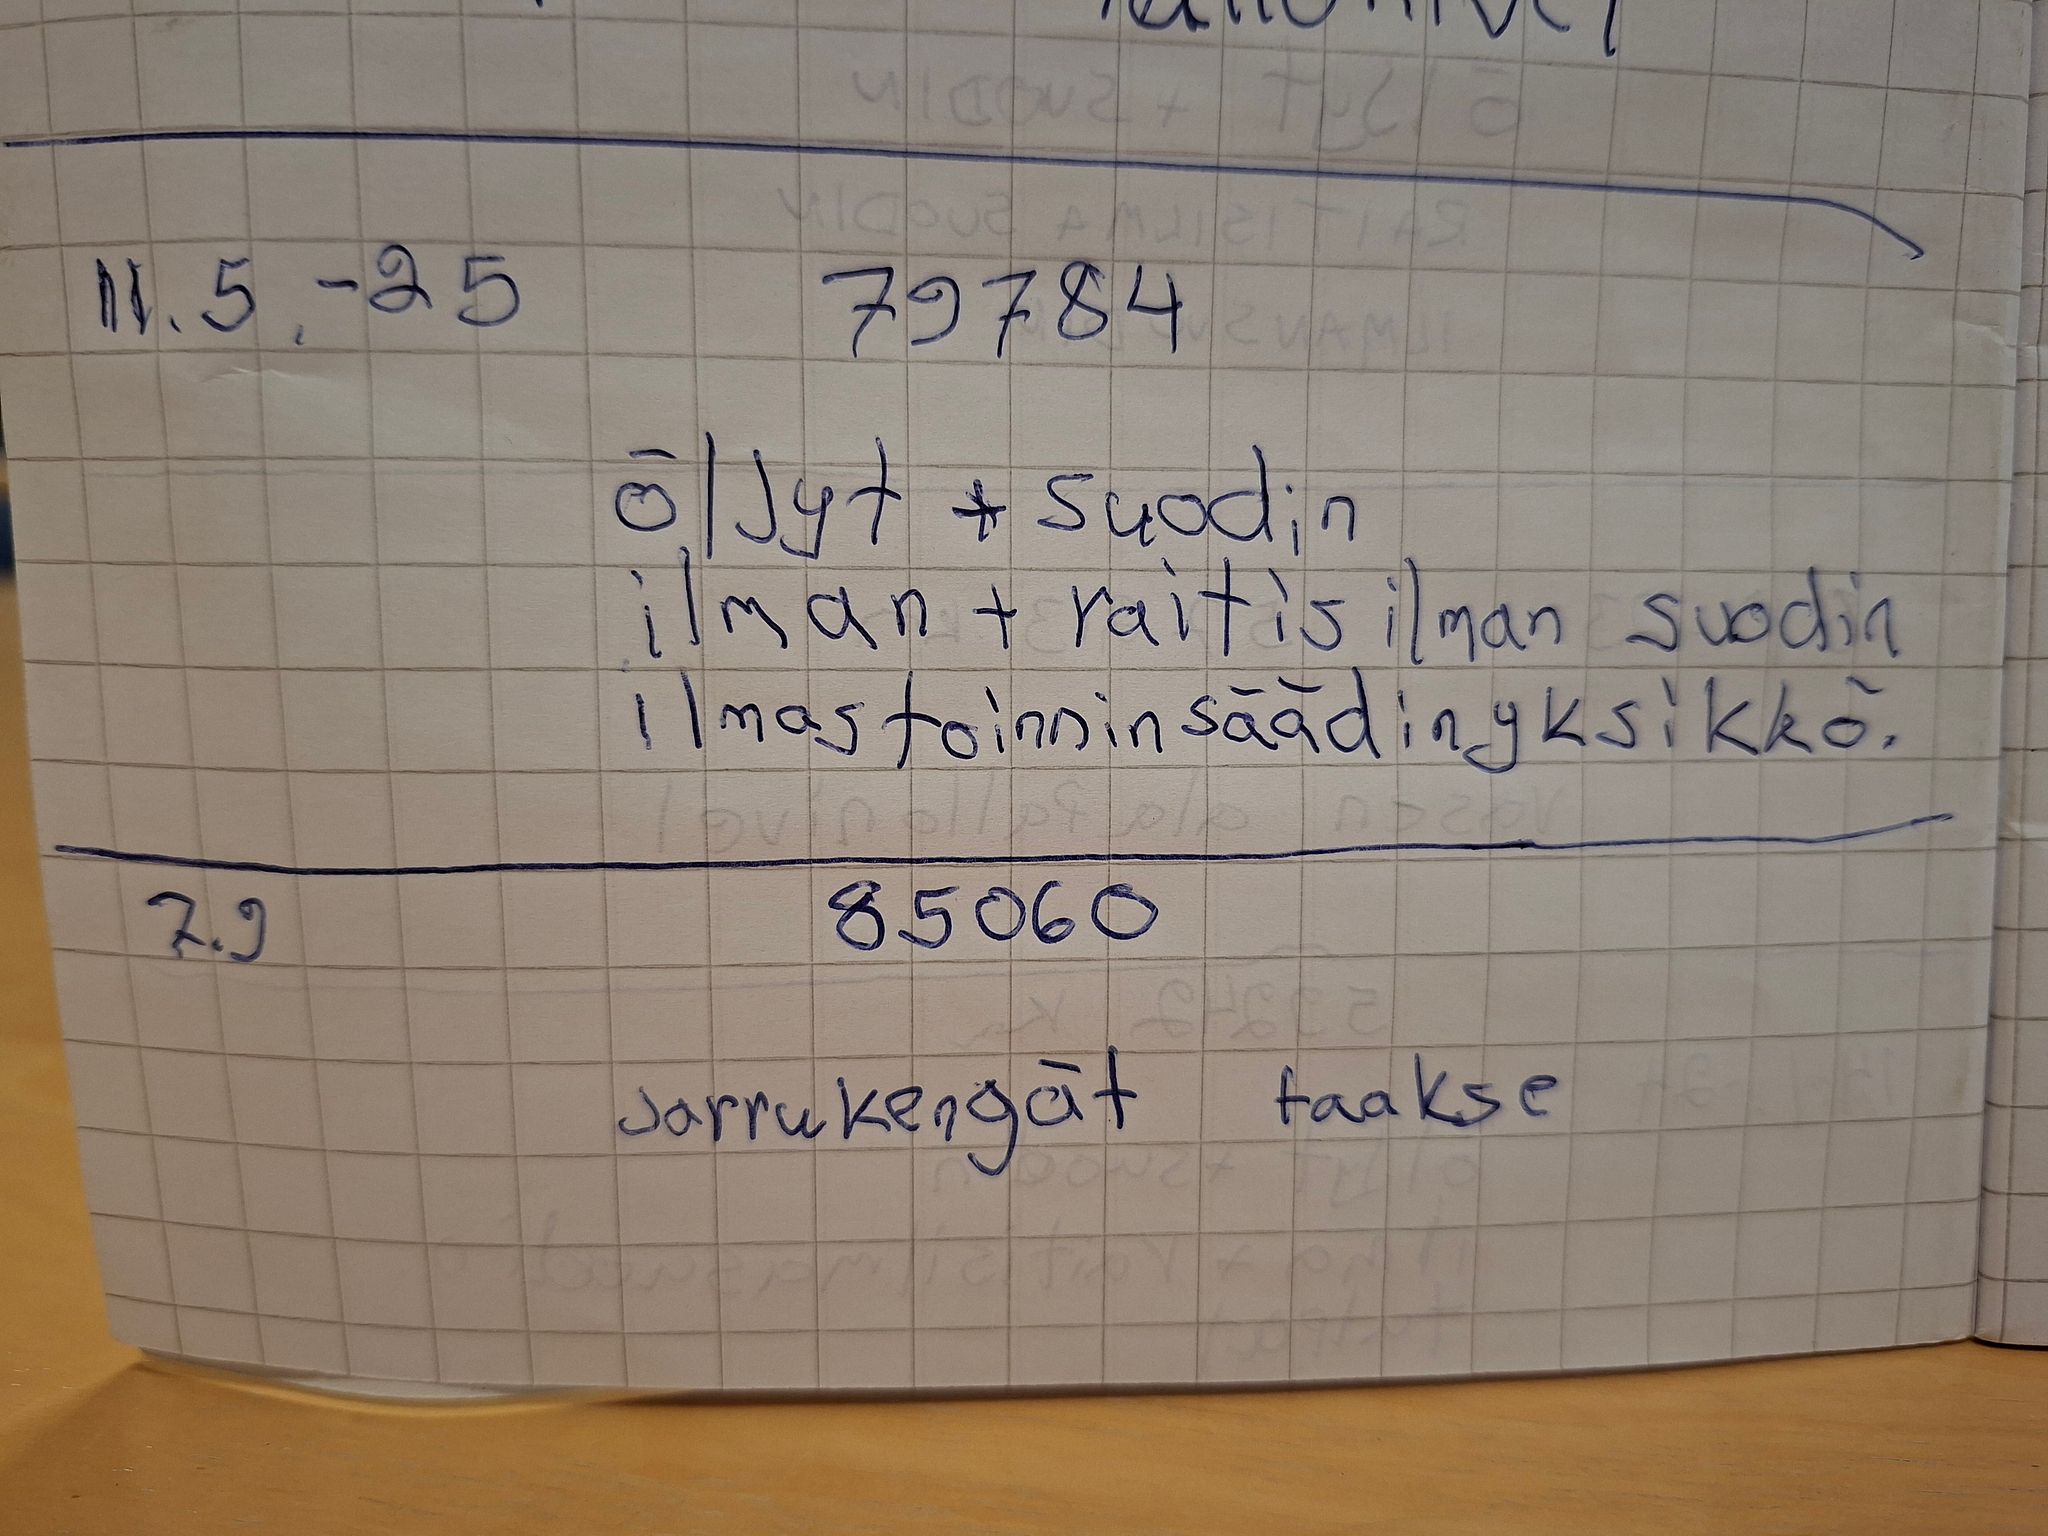 11.5.-25 79784
öljyt + suodin
ilman + raitisilman suodin
ilmastoinninsäädinyksikkö.
7.9 85060
Jarrukengät taakse